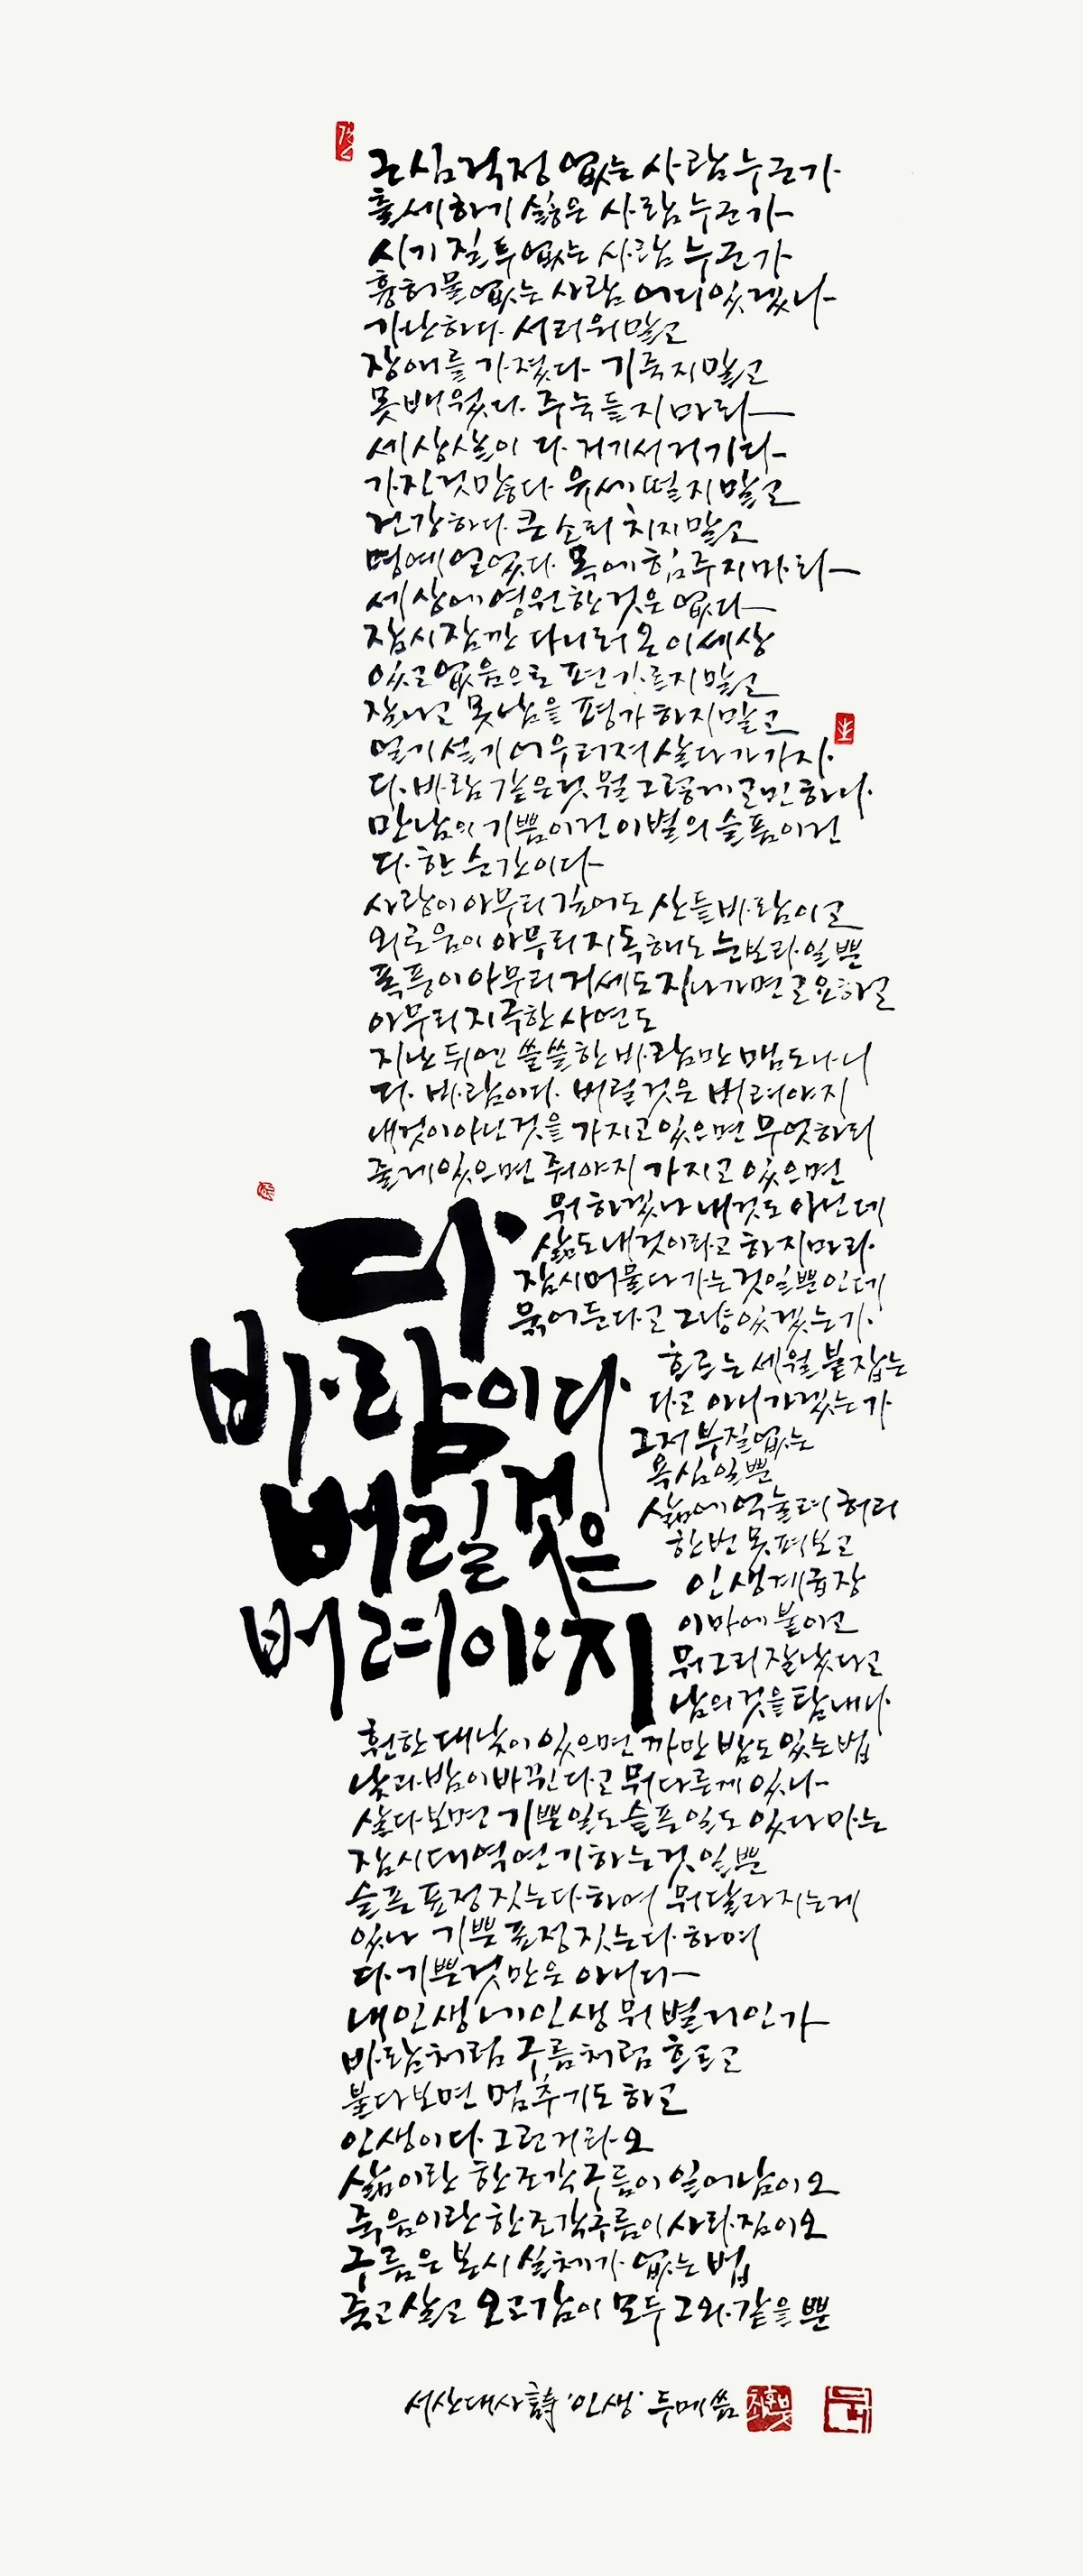 근심걱정 없는 사람 누군가
출세하기 싫은 사람 누군가
시기질투 없는 사람 누군가
흉허물 없는 사람 어디 있겠나
가난하다 서러워말고
장애를 가졌다 기죽지말고
못배웠다 주눅들지마라
세상살이 다 거기서 거기다
가진것 많다 유세떨지말고
건강하다 큰소리 치지말고
명예 얻었다 목에 힘주지마라
세상에 영원한것은 없다
잠시잠깐 다니러 온 이세상
있고 없음으로 편 가르지말고
잘나고 못남을 평가 하지말고
얼기설기 어우러져 살다가 가자
다 바람같은것 뭘 그렇게 고민하나
만남의 기쁨이건 이별의 슬픔이건
다 한 순간이다
사랑이 아무리 깊어도 산들바람이고
외로움이 아무리 지독해도 눈보라일 뿐
폭풍이 아무리 거세도 지나가면 고요하고
아무리 지극한 사연도
지난 뒤엔 쓸쓸한 바람만 맴도나니
다 바람이다 버릴것은 버려야지
내것이 아닌것을 가지고 있으면 무엇하리
줄게 있으면 줘야지 가지고 있으면
뭐 하겠나 내것도 아닌데
삶도 내것이라고 하지마라
잠시 머물다 가는것일뿐인데
묶어둔다고 그냥 있겠는가
흐르는 세월 붙잡는
다고 아니가겠는가
그저 부질없는
욕심일뿐
삶에 억눌려 허리
한번 못펴보고
인생계급장
이마에 붙이고
뭐그리 잘났다고
남의것을 탐내나
다
바람이다
버릴것은
버려야지
훤한 대낮이 있으면 까만 밤도 있는법
낮과 밤이 바뀐다고 뭐 다른게 있나
살다보면 기쁜일도 슬픈일도 있다마는
잠시 대역 연기하는것 일뿐
슬픈 표정짓는다하여 뭐 달라지는게
있나 기쁜표정 짓는다 하여
다 기쁜것만은 아니다
내인생 네인생 뭐 별거인가
바람처럼 구름처럼 흐르고
불다보면 멈추기도 하고
인생이다 그런거라오
삶이란 한조각 구름이 일어남이오
죽음이란 한조각구름이 사라짐이오
구름은 본시 실체가 없는 법
죽고 살고 오고감이 모두 그와 같을 뿐
서산대사詩 '인생' 두메 씀